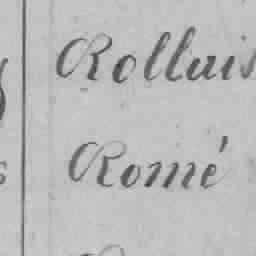 Rollais
Romé